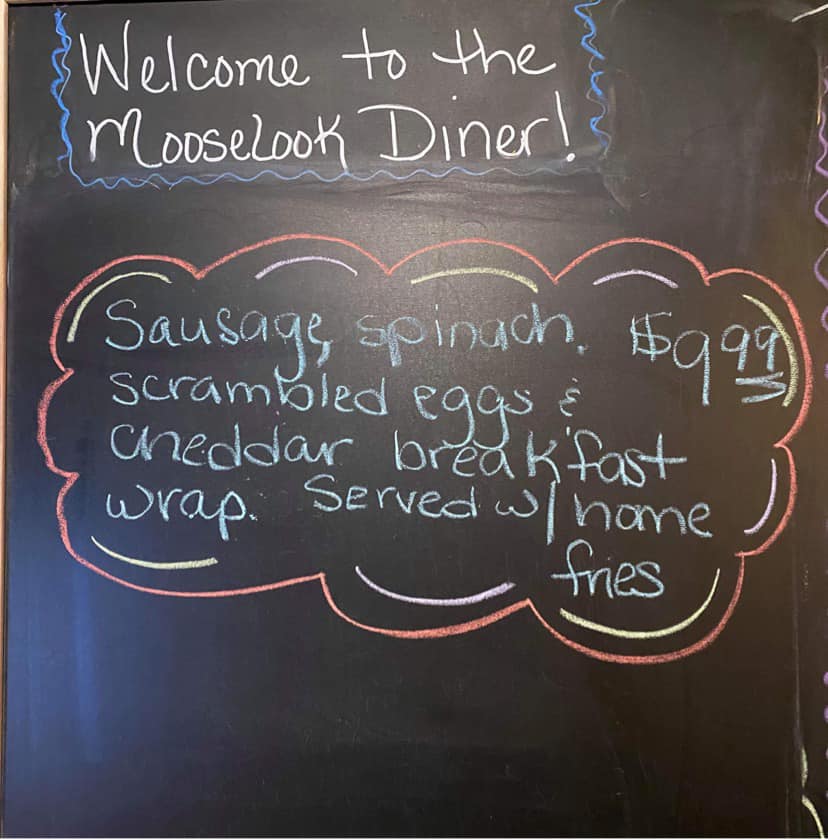 Welcome to the
Mooselook Diner!
Sausage, spinach, $9 99
scrambled eggs &
cheddar breakfast
wrap. Served w/ home
fries